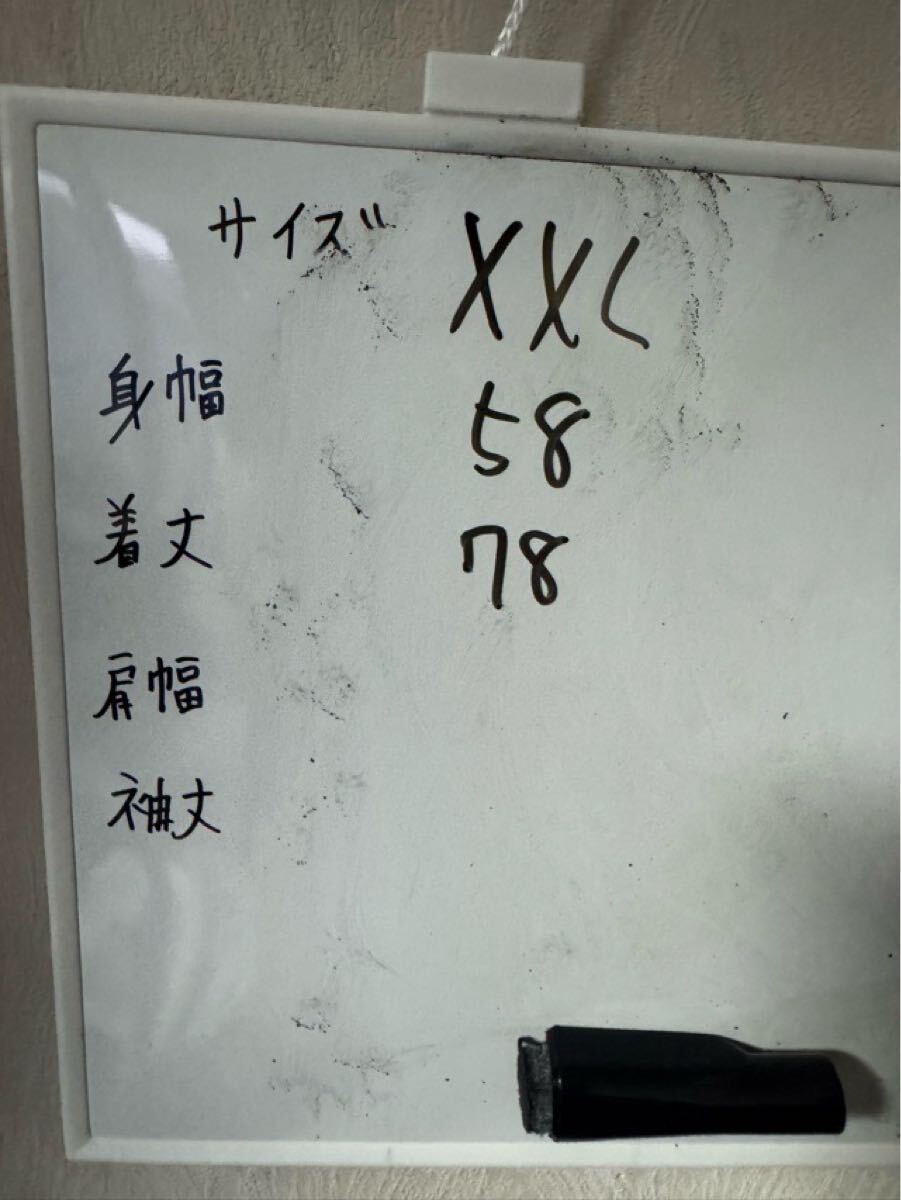 サイズ XXL
身幅 58
着丈 78
肩幅
袖丈